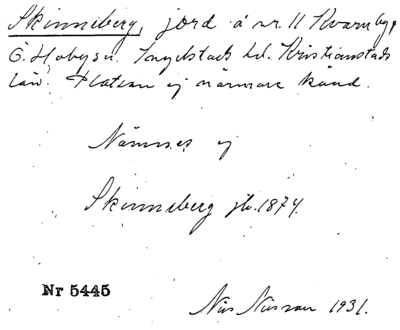 Skinneberg, jord å nr 11 Kvarnby,
Ö. Hoby sn. Ingelstads hd. Kristianstads
län. Platsen ej närmare känd.
Nämnes ej
Skinneberg jb. 1874.
Nr 5445
Nils Nilsson 1931.